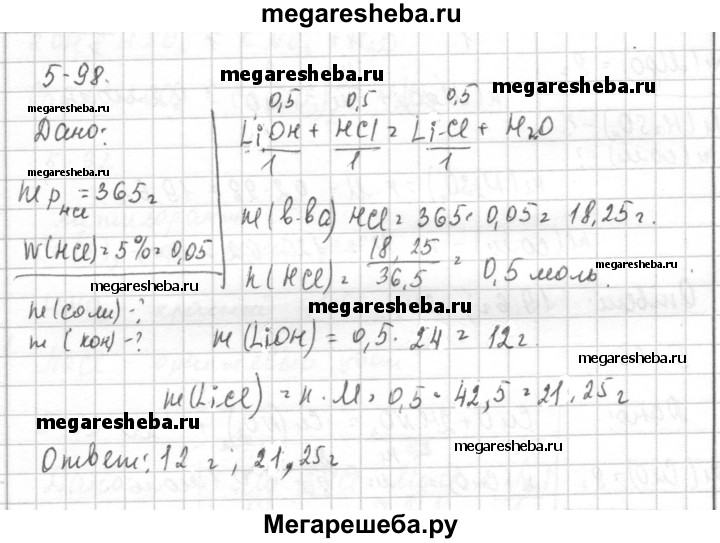 megaresheba.ru
5-98.
megaresheba.ru
megaresheba.ru
megaresheba.ru
0,5 0,5 0,5
Дано:
LiOH + HCl = LiCl + H2O
1 1 1
megaresheba.ru
m р HCl = 365 г
m(в-ва) HCl = 365 · 0,05 = 18,25 г.
W(HCl) = 5% = 0,05
n(HCl) = 18,25 / 36,5 = 0,5 моль.
megaresheba.ru
megaresheba.ru
m(соли) -?
megaresheba.ru
m(кон) -?
m(LiOH) = 0,5 · 24 = 12 г.
megaresheba.ru
m(LiCl) = n · M = 0,5 · 42,5 = 21,25 г
megaresheba.ru
megaresheba.ru
Ответ: 12 г; 21,25 г
megaresheba.ru
Мегарешеба.ру